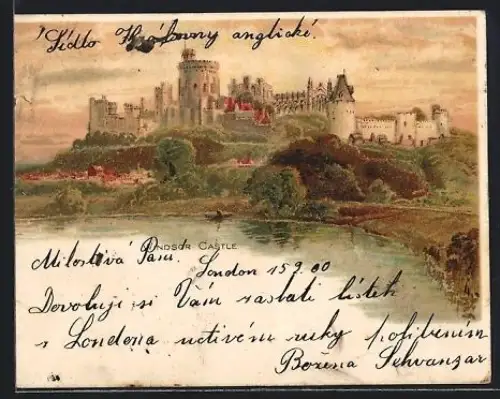 Sídlo Královny anglické.
WINDSOR CASTLE
Milostivá Paní.
London 15 9 00
Dovoluji si Vám zaslati lístek
z Londona uctivém ruky políbením
Božena Schvanzar